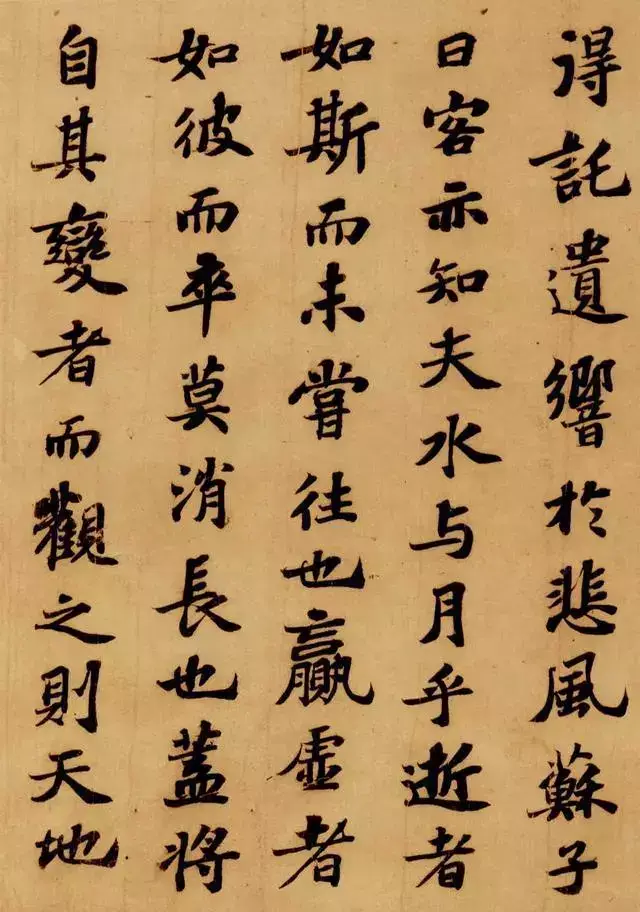 得託遺響於悲風蘇子
曰客亦知夫水与月乎逝者
如斯而未甞往也贏虛者
如彼而卒莫消長也蓋將
自其變者而觀之則天地